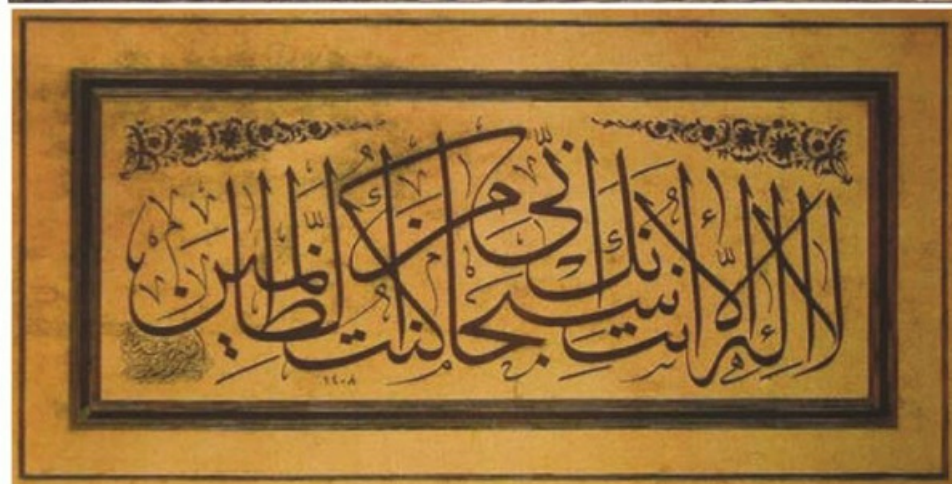 لا إله إلا أنت سبحانك إني كنت من الظالمين
١٤٠٨